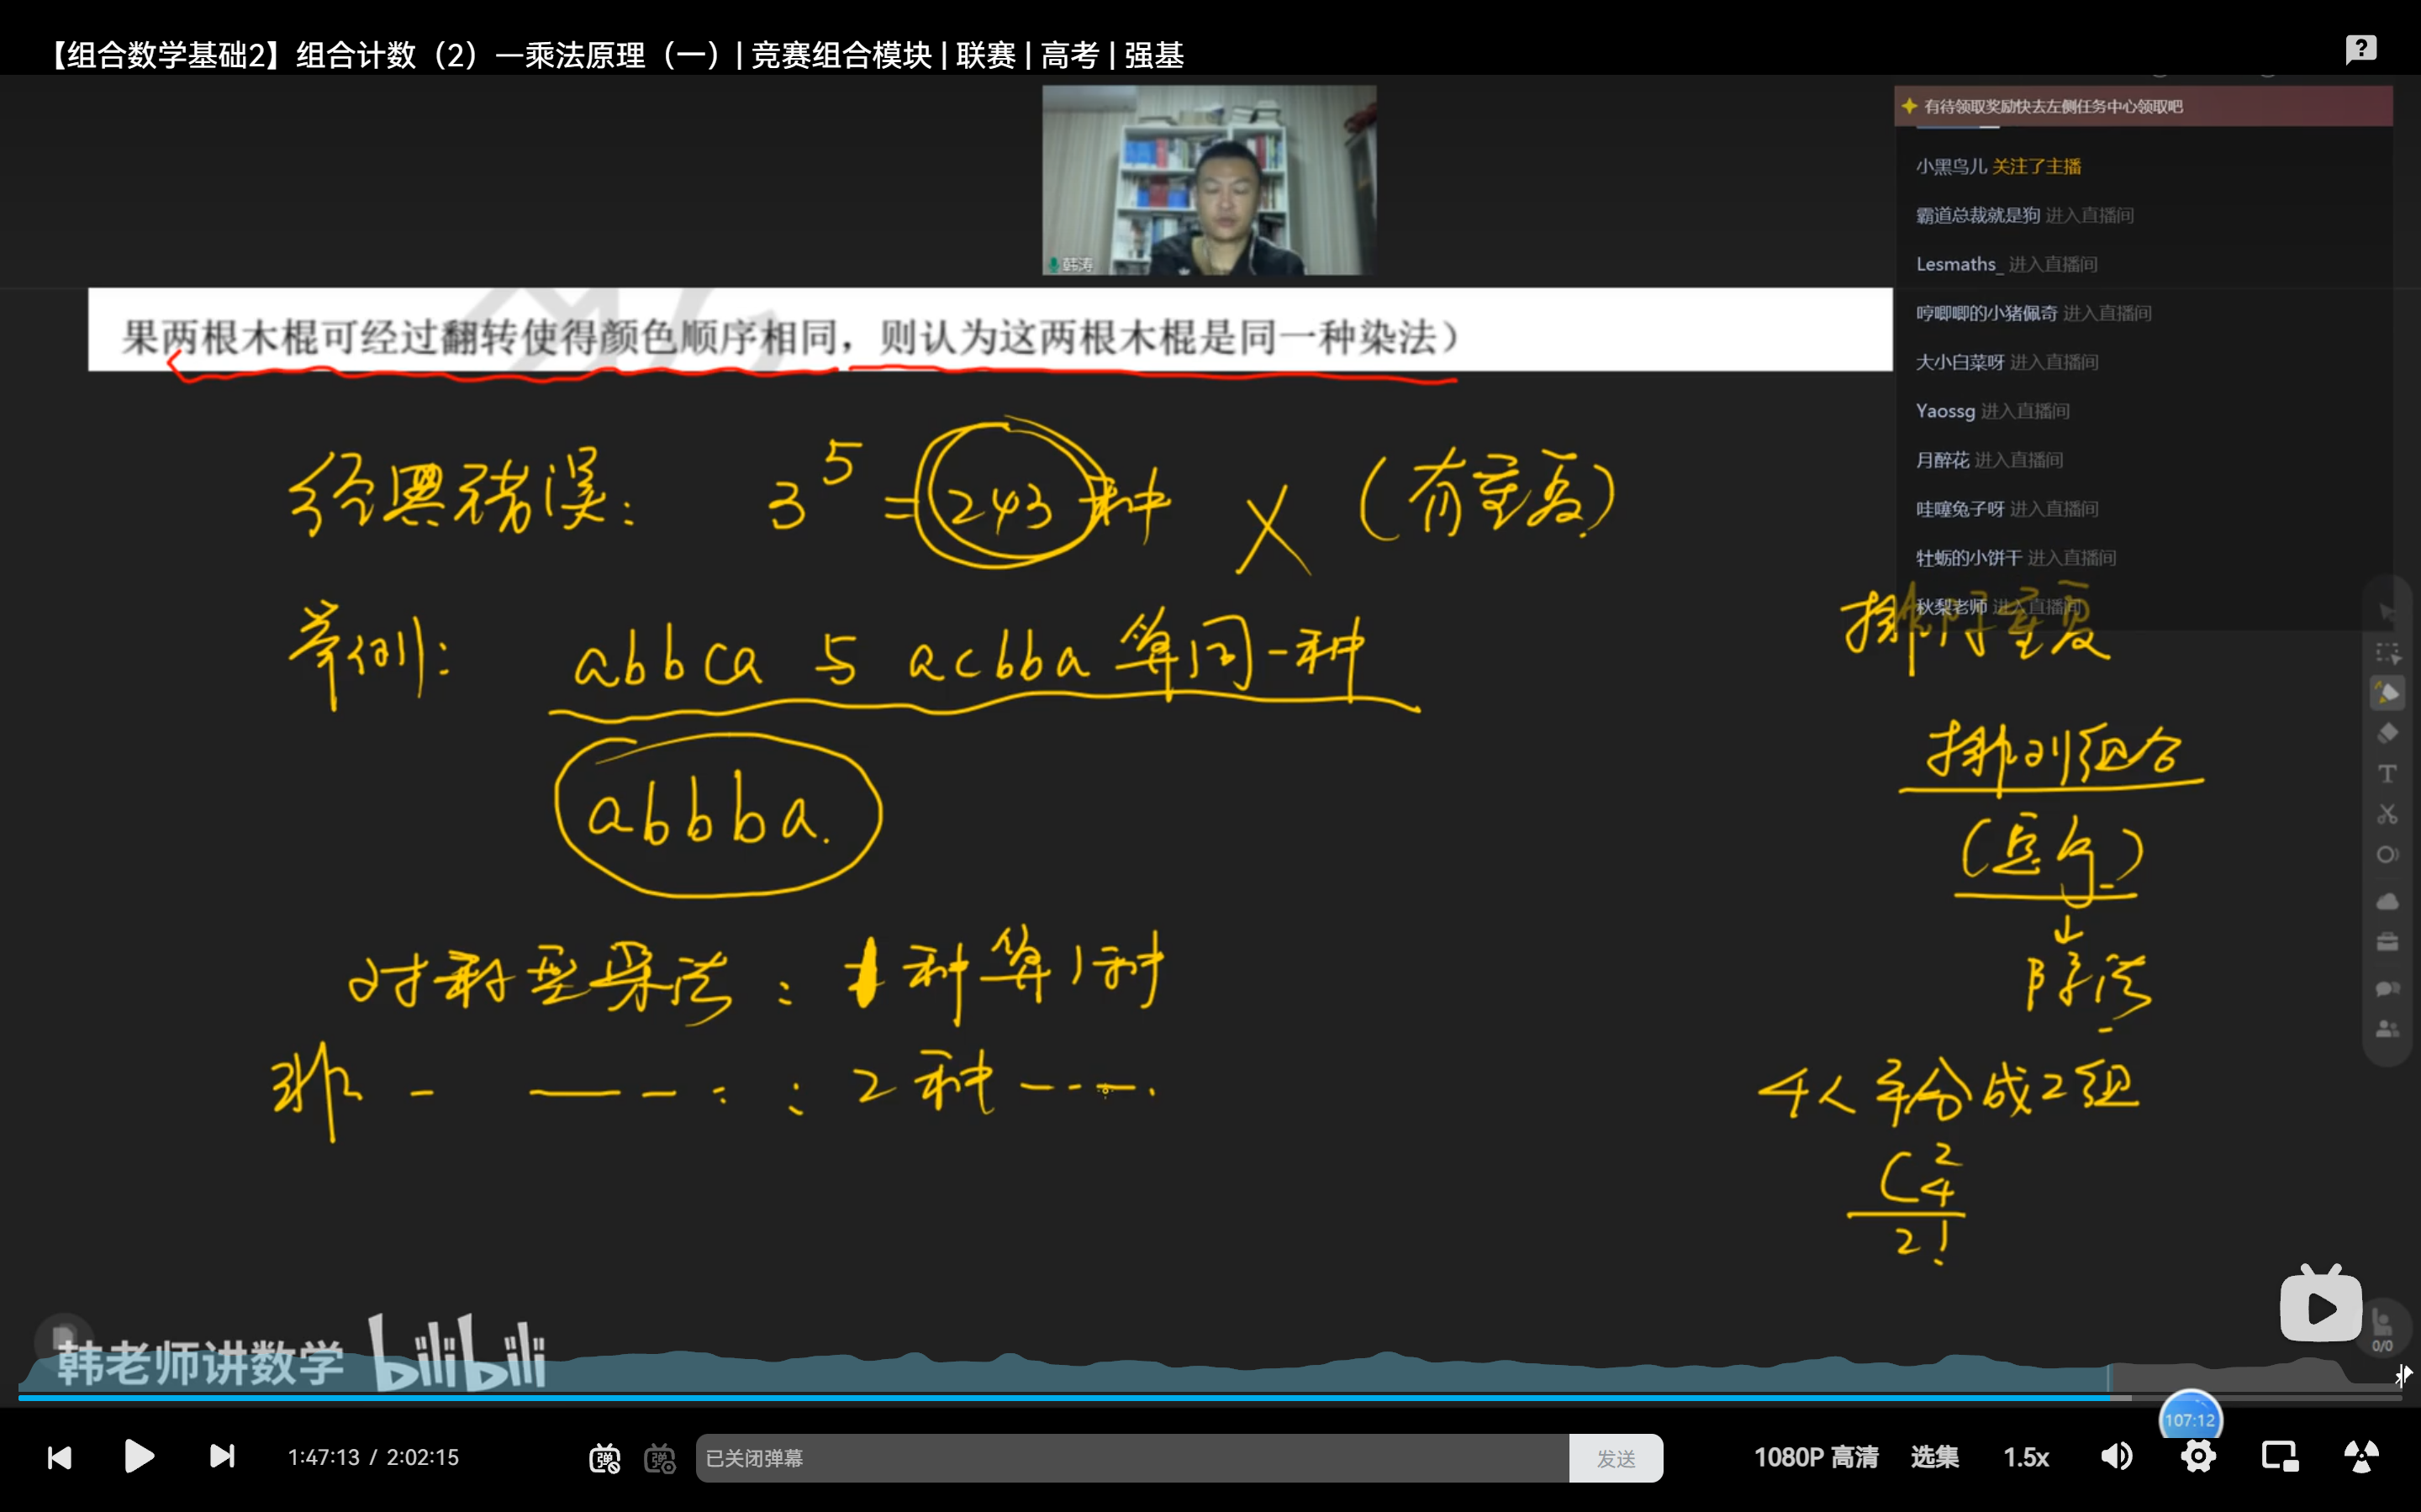 【组合数学基础2】组合计数（2）—乘法原理（一）| 竞赛组合模块 | 联赛 | 高考 | 强基
有待领取奖励快去左侧任务中心领取吧
小黑鸟儿 关注了主播
霸道总裁就是狗 进入直播间
Lesmaths_ 进入直播间
哼唧唧的小猪佩奇 进入直播间
大小白菜呀 进入直播间
Yaossg 进入直播间
月醉花 进入直播间
哇噻兔子呀 进入直播间
牡蛎的小饼干 进入直播间
秋梨老师 进入直播间
韩涛
果两根木棍可经过翻转使得颜色顺序相同，则认为这两根木棍是同一种染法）
经典错误： 3^5 = 243 种 X （有重复）
举例： abbca 与 acbba 算同一种
abbba.
对称型染法：1种算1种
非 - —— - : : 2种 ----.
排列组合
↓
除法
4人平分成2组
C_4^2
2!
韩老师讲数学 bilibili
0/0
107:12
1:47:13 / 2:02:15
弹
弹
已关闭弹幕
发送
1080P 高清
选集
1.5x